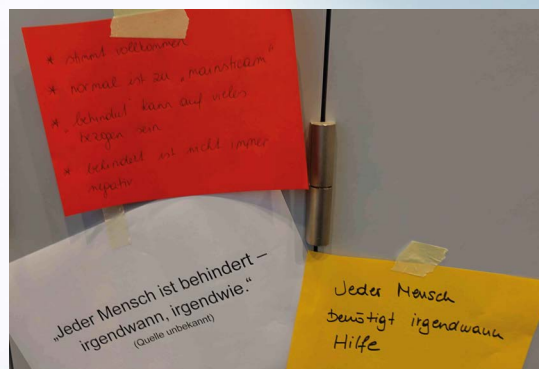 * stimmt vollkommen
* normal ist zu „mainstream“
* „behindert“ kann auf vieles
bezogen sein
* behindert ist nicht immer
negativ
„Jeder Mensch ist behindert –
irgendwann, irgendwie.“
(Quelle unbekannt)
Jeder Mensch
benötigt irgendwann
Hilfe